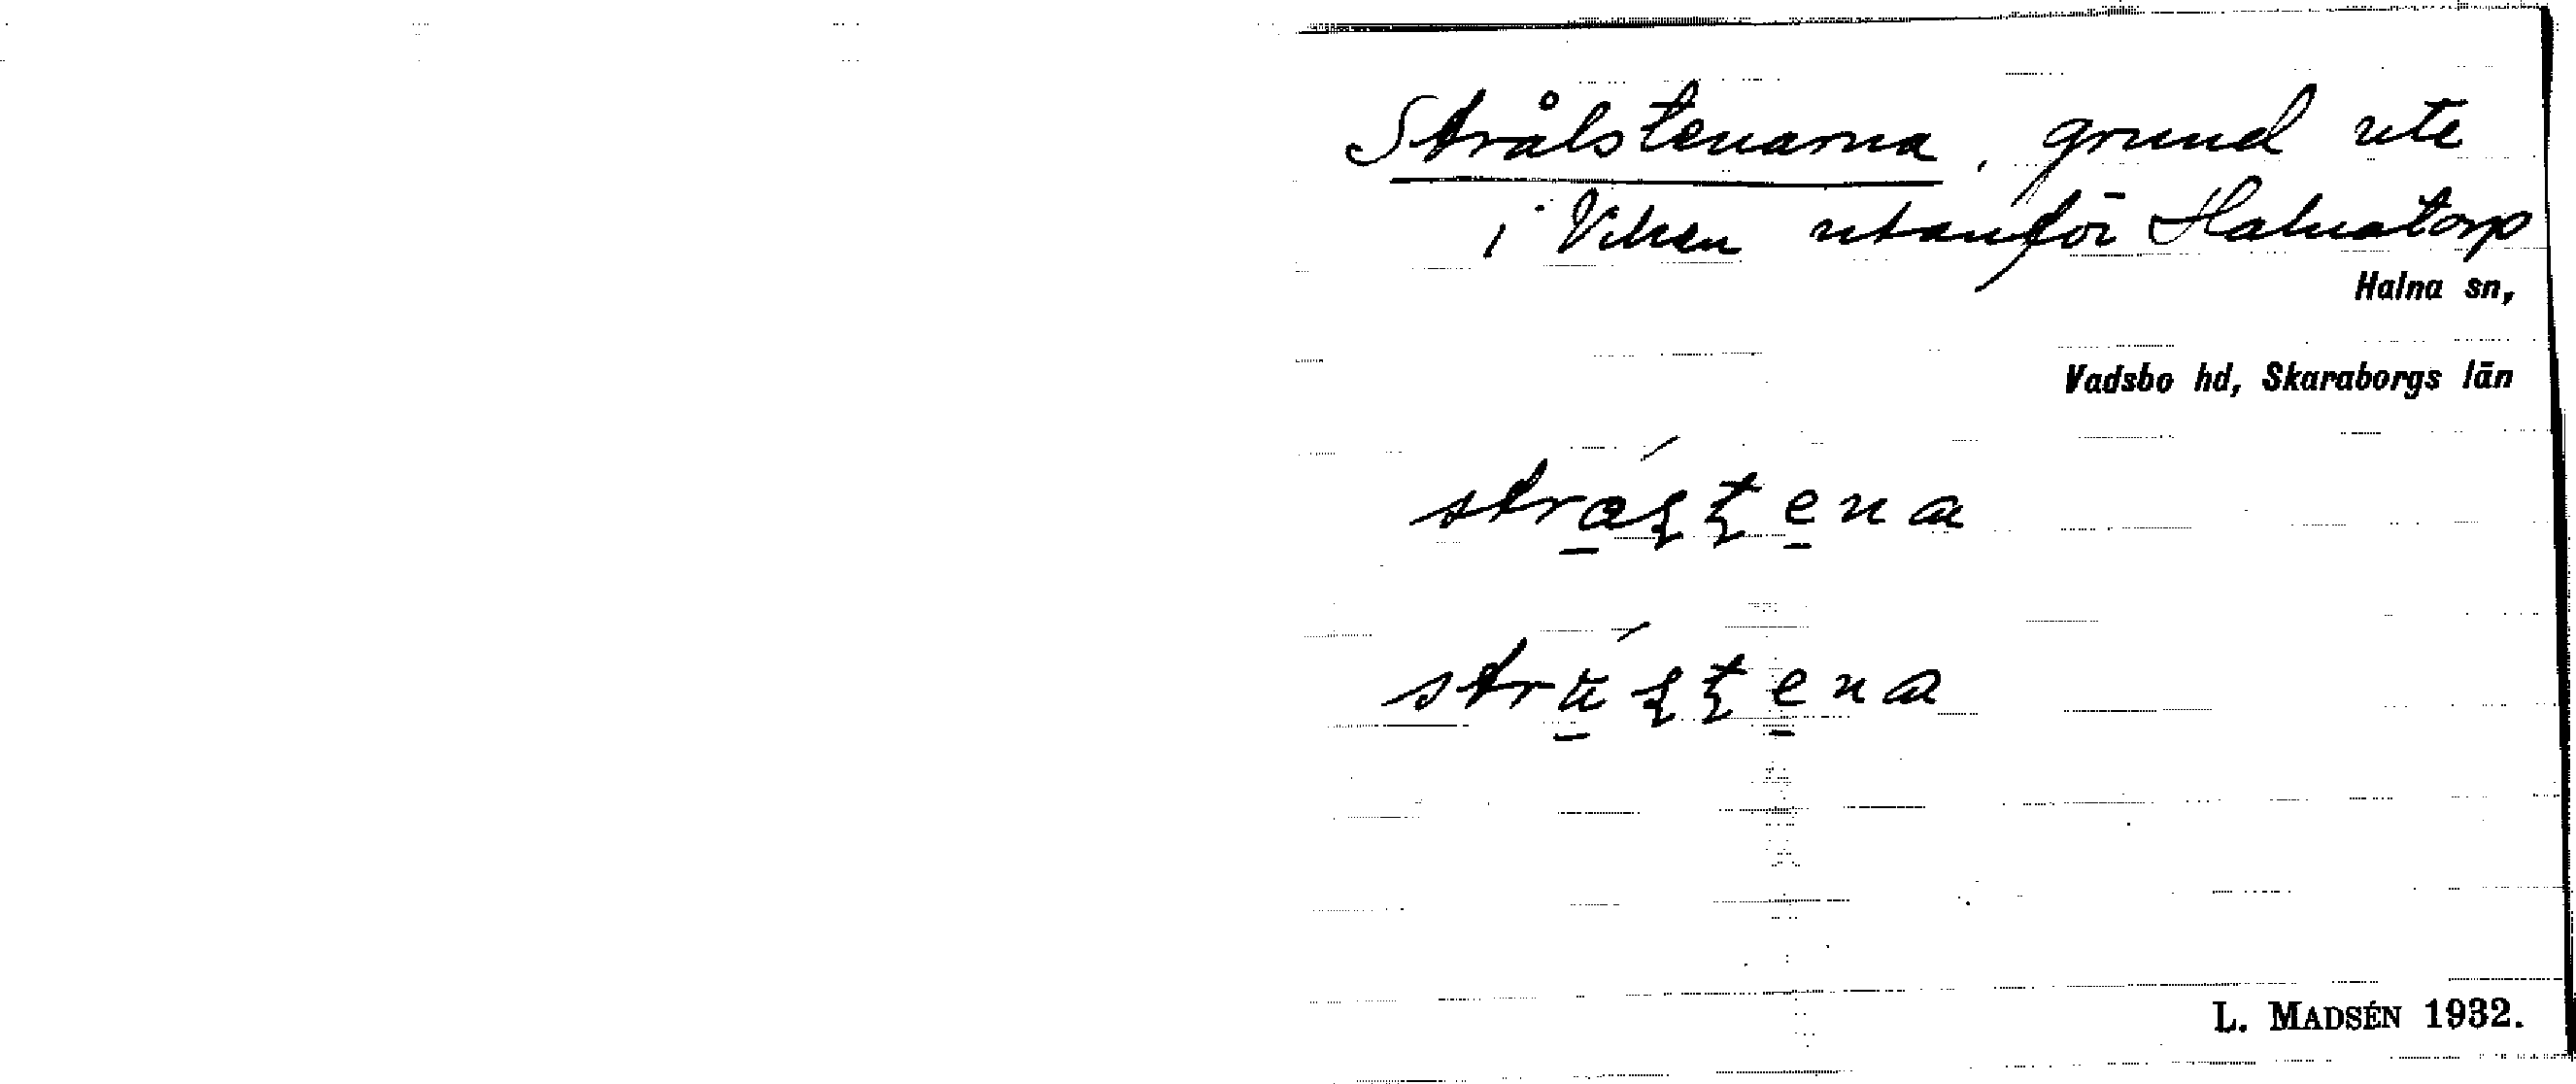 Strålstenarna, grund ute
i Viken utanför Halnatorp
Halna sn,
Vadsbo hd, Skaraborgs län
L. MADSÉN 1932.